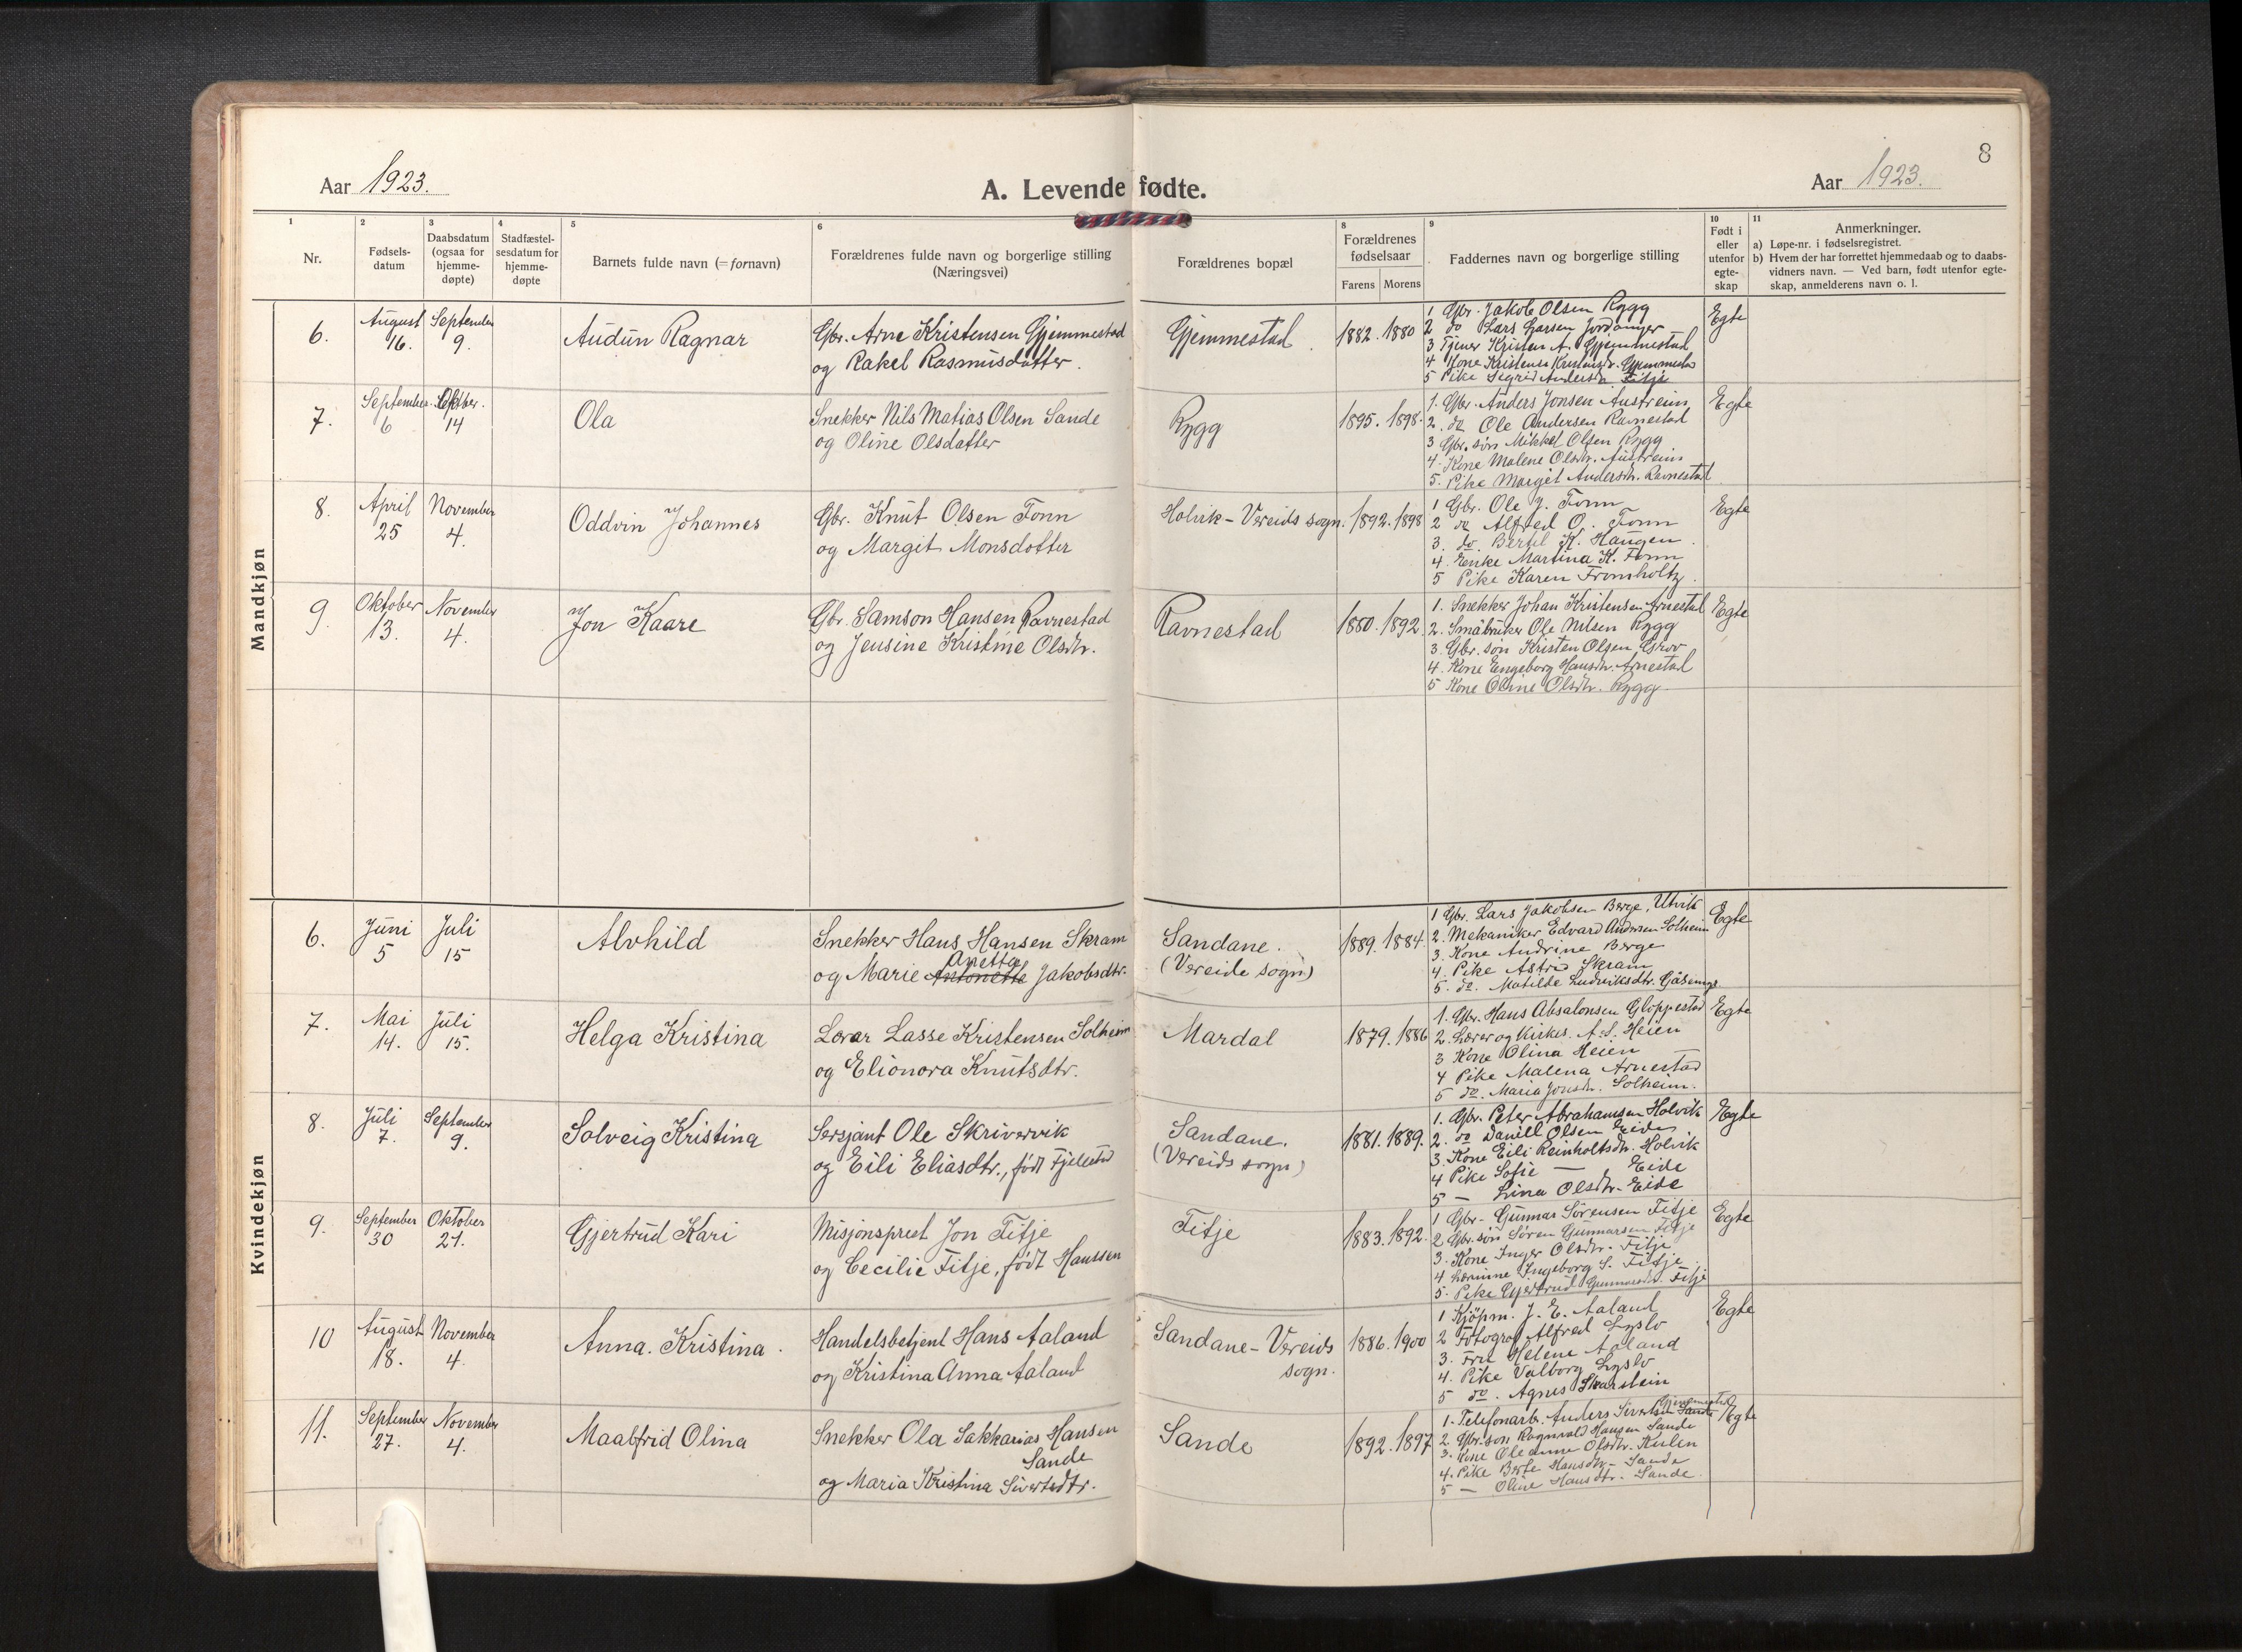 8
Aar 1923.
A. Levende fødte.
Aar 1923.
1 2 3 4 5 6 8 9 10 11
Nr.
Fødsels-
datum
Daabsdatum
(ogsaa for
hjemme-
døpte)
Stadfæstel-
sesdatum for
hjemme-
døpte
Barnets fulde navn (= fornavn)
Forældrenes fulde navn og borgerlige stilling
(Næringsvei)
Forældrenes bopæl
Forældrenes
fødselsaar
Farens Morens
Faddernes navn og borgerlige stilling
Født i
eller
utenfor
egte-
skap
Anmerkninger.
a) Løpe-nr. i fødselsregistret.
b) Hvem der har forrettet hjemmedaab og to daabs-
vidners navn. — Ved barn, født utenfor egte-
skap, anmelderens navn o. l.
Mandkjøn
6.
August
16.
September
9.
Audun Ragnar
Gbr. Arne Kristensen Gjemmestad
og Rakel Rasmusdatter.
Gjemmestad
1882. 1880
1 Gbr. Jakob Olsen Rygg
2 do Lars Larsen Jordanger
3 Tjener Kristen A. Gjemmestad
4 Kone Kristense Kristensdr. Gjemmestad
5 Pike Sigrid Andersdr. Fitje
Egte
7.
September
6
Oktber.
14
Ola
Snekker Nils Matias Olsen Sande
og Oline Olsdatter
Rygg
1895. 1898.
1. Gbr. Anders Jonsen Austreim
2. do Ole Andersen Ravnestad
3 Gbr. søn Mikkel Olsen Rygg
4. Kone Malene Olsdtr. Austreim
5. Pike Margit Andersdtr. Ravnestad
Egte
8.
April
25
November
4.
Oddvin Johannes
Gbr. Knut Olsen Fonn
og Margit Monsdotter
Holvik - Vereids sogn.
1892. 1898
1 Gbr. Ole J. Fonn
2 do Alfred O. Fonn
3. do. Bertil K. Haugen
4. Enke Martina K. Fonn
5 Pike Karen Fromholtz.
Egte
9.
Oktober
13.
November
4.
Jon Kaare
Gbr. Samson Hansen Ravnestad
og Jensine Kristine Olsdtr.
Ravnestad
1880. 1892.
1. Snekker Johan Kristensen Arnestad
2. Småbruker Ole Nilsen Rygg
3. Gbr. søn Kristen Olsen Grov
4. Kone Engeborg Hansdtr. Arnestad
5 Kone Oline Olsdtr. Rygg
Egte
Kvindekjøn
6.
Juni
5
Juli
15
Alvhild
Snekker Hans Hansen Skram
Anetta
og Marie Antonette Jakobsdtr.
Sandane.
(Vereide sogn)
1889. 1884.
1 Gbr. Lars Jakobsen Berge, Utvik
2. Mekaniker Edvard Andersen Solheim
3. Kone Andrine Berge
4. Pike Astrid Skram
5. do. Matilde Ludviksdtr.
Egte
7.
Mai
14.
Juli
15.
Helga Kristina
Lærar Lasse Kristensen Solheim
og Elionora Knutsdtr.
Mardal
1879. 1886
1. Gbr. Hans Absalonsen Gloppestad
2. Lærer og Kirkes. A. S. Heien
3 Kone Olina Heien
4 Pike Malena Arnestad
5 do. Maria Jonsdr. Solheim.
Egte
8.
Juli
7.
September
9.
Solveig Kristina
Sersjant Ole Skrivervik
og Eili Eliasdtr., født Fjellestad
Sandane.
(Vereids sogn)
1881. 1889.
1. Gbr. Peter Abrahamsen Holvik
2. do Daniel Olsen Eide
3. Kone Eili Reinholtsdr. Holvik
4 Pike Sofie — Eide
5 — Lina Olsdtr. Eide
Egte
9.
September
30
Oktober
21.
Gjertrud Kari
Misjonsprest Jon Fitje
og Cecilie Fitje, født Hanssen
Fitje
1883. 1892.
1 Gbr. Gunnar Sørensen Fitje
2 Gbr. søn Søren Gunnarsen Fitje
3. Kone Inger Olsdtr. Fitje
4. Lærinne Ingeborg S. Fitje.
5. Pike Gjertrud Gunnarsdtr. Fitje
Egte
10
August
18.
November
4.
Anna. Kristina.
Handelsbetjent Hans Aaland
og Kristina Anna Aaland
Sandane - Vereids
sogn.
1886. 1900
1 Kjöpm. J. E. Aaland
2 Fotograf Alfred Lyslo
3. Fru Helene Aaland
4. Pike Valborg Lyslo
5 do. Agnes Skarstein
Egte
11.
September
27.
November
4.
Maalfrid Olina
Snekker Ola Sakkarias Hansen
Sande
og Maria Kristina Sivertsdtr.
Sande
1892. 1897
Gjemmestad
1. Telefonarb. Anders Sivertsen Sande
2. Gbr. søn Ragnvald Hansen Sande
3. Kone Oleanne Olsdtr. Kulen
4. Pike Berte Hansdtr. Sande
5 — Oline Hansdtr. Sande.
Egte